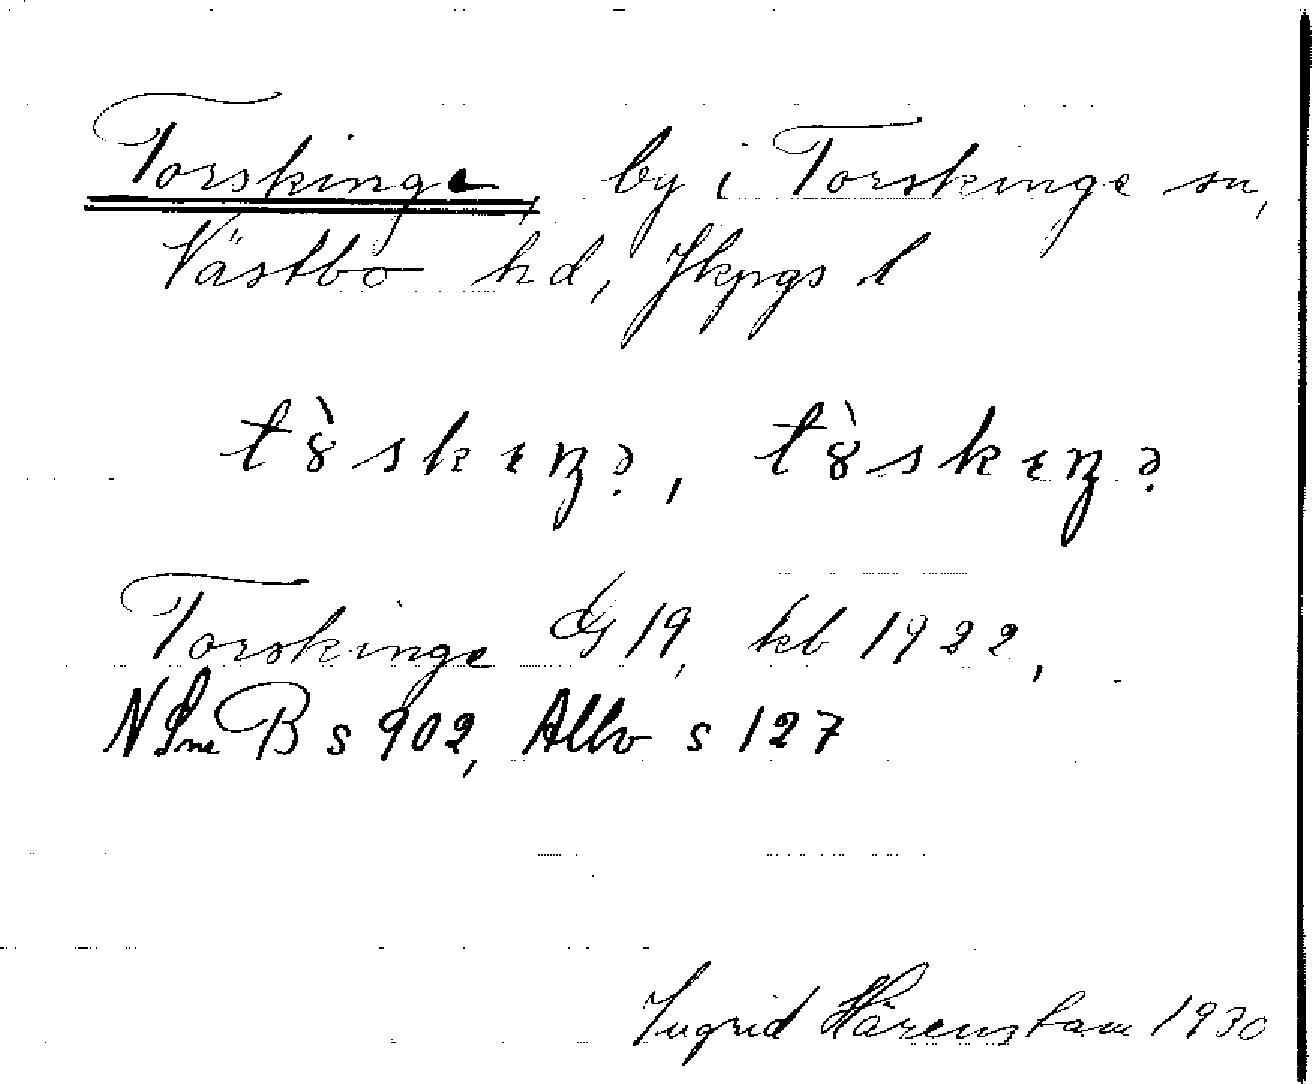 Torskinge, by i Torskinge sn,
Västbo hd, Jkpgs l
t8̀skıŋɂ, t8̀skıŋɂ
Torskinge GG 19, kb 1922,
NSmB s 902, Allvo s 127
Ingrid Härenstam 1930